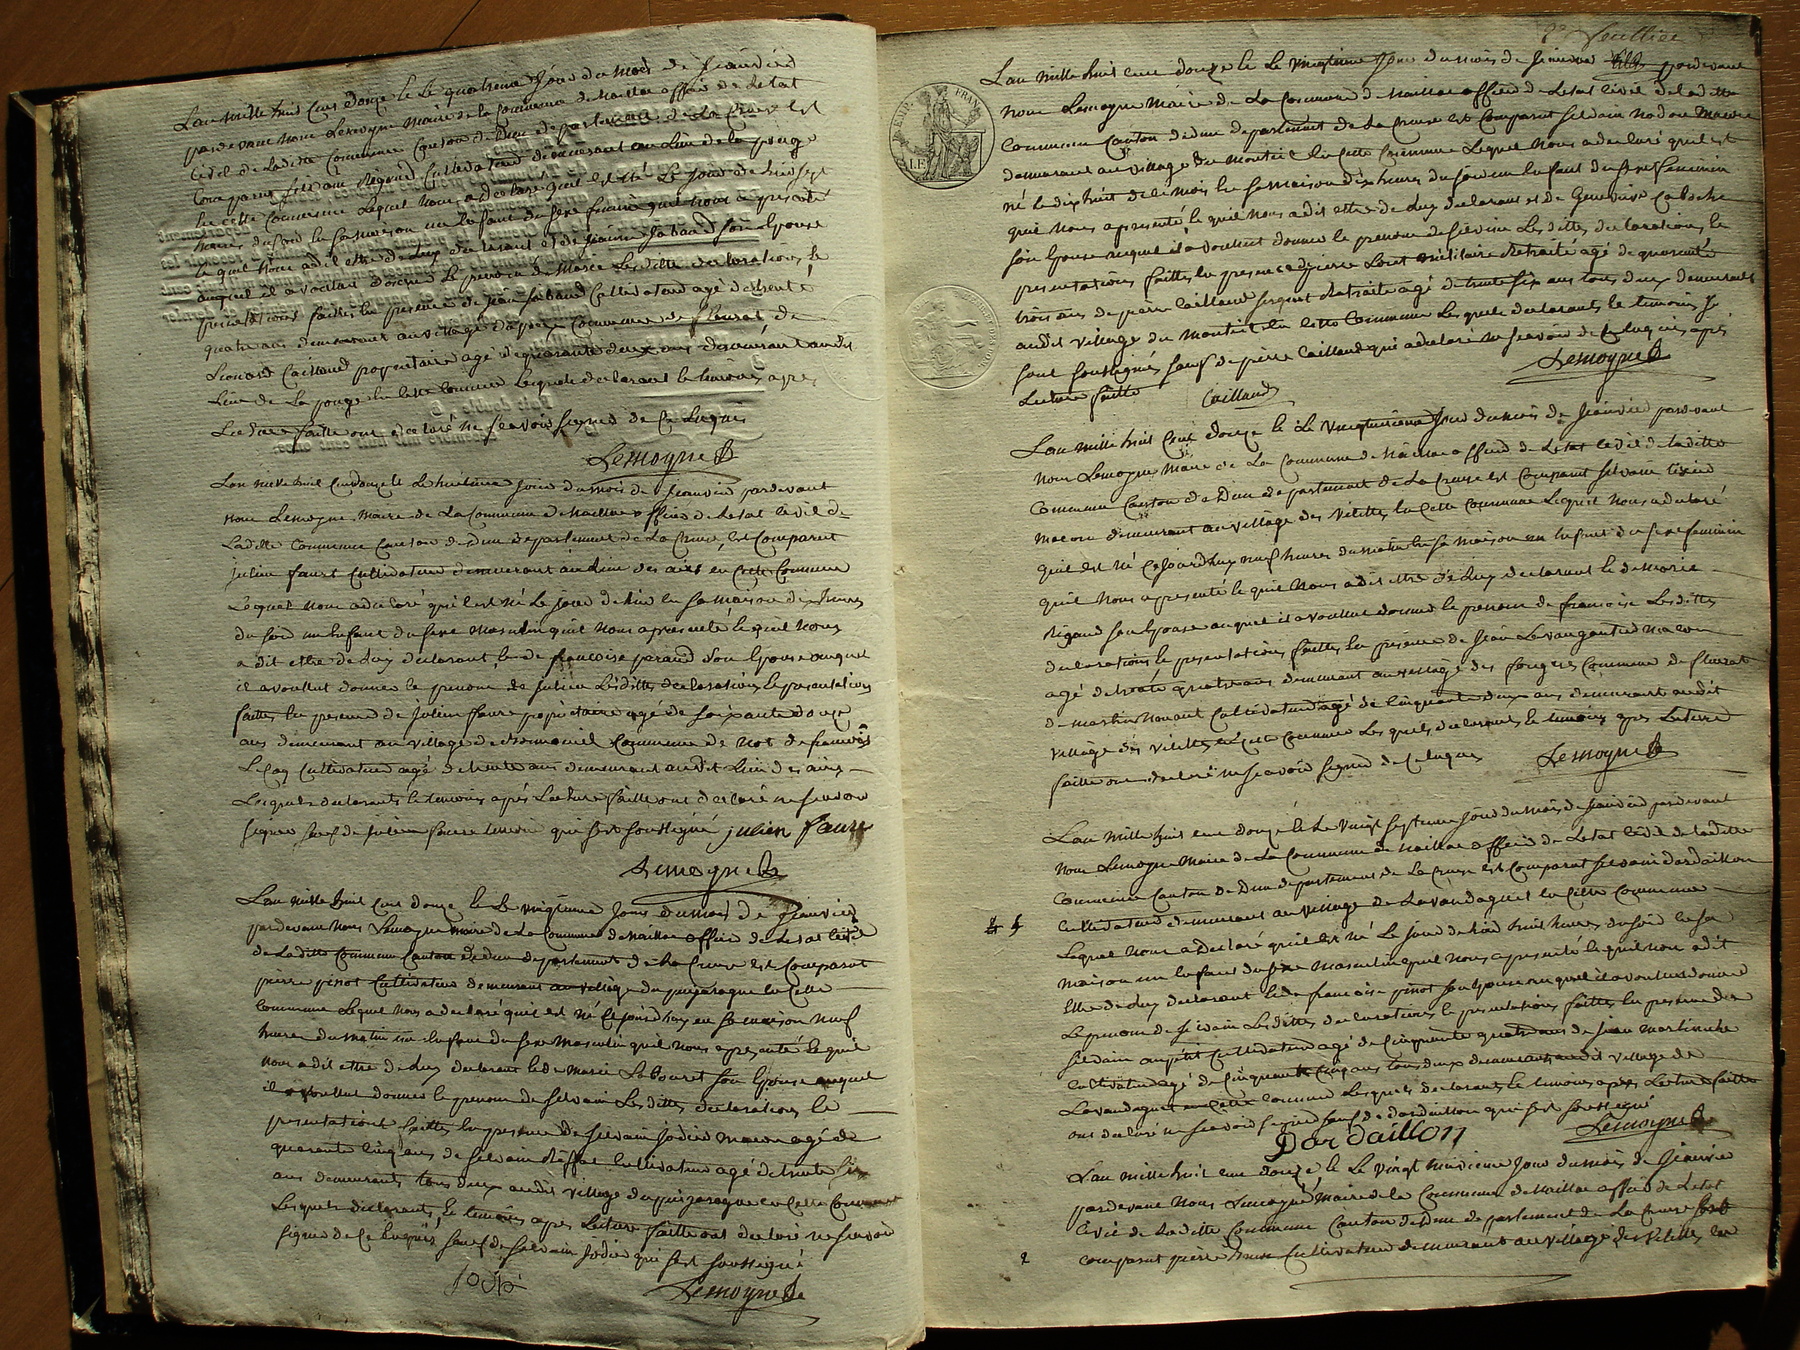 Lan mille huit Cens douze le Le quatrieme Jour du mois de Jeanvied
pardevant Nous Lemoyne Maire de la Commune de Naillac officier de Letat
Civil de Ladite Commune Canton de Dun departement de La Creuse est
Comparut Silvain Rigaud Cultivateur demeurant au Lieu de la pouge
en cette Commune Lequel Nous a declaré quil est né Le Jour de hier sept
heures du soir en sa maison un enfant du sexe feminin quil nous a presenté
Le quel Nous a dit ettre de Luy declarant et de Jeanne Jabaud son Epouse
auquel il a voullut donner Le prenom de Marie Les dittes declarations le
presentations faittes en presence de Jean Jabaud Cultivateur agé de trente
quatre ans demeurant au village du Commune de fleurat de
Leonard Caillaud propriettaire agé de quarante deux ans demeurant audit
Lieu de La pouge en Cette Commune Lesquels declarant le temoins apres
Lecture faitte ont declaré ne Scavoir Signer de Ce Enquis
Lemoyne
Lan mille huit Cens douze le Le huitieme Jour du mois de Jeanvied pardevant
nous Lemoyne Maire de La Commune de Naillac officier de Letat Civil de
Laditte Commune Canton de Dun departement de La Creuse, est Comparut
julien faure Cultivateur demeurant au Lieu des aires en Cette Commune
Lequel Nous a declaré quil est né Le Jour de hier en sa maison dix heures
du soir un Enfant du Sexe Masculin quil nous a presenté le quel Nous
a dit ettre de Luy declarant, le de francoise paraud Son Epouse auquel
il a voullut donner le prenom de Julien Lesdittes declarations le presentations
faittes en presence de Julien faure propriettaire agé de soixante douze
ans demeurant au village de Commune de Not de francois
Lecoq Cultivateur agé de trente ans demeurant audit Lieu des aires
Lesquels declarants le temoins aprés Lecture faitte ont declaré ne scavoir
signer sauf de Julien faure temoin qui sest soussigné julien faure
Lemoyne
Lan mille huit Cens douze le Le vingtieme Jour du mois de Jeanvied
pardevant Nous Lemoyne maire de La Commune de Naillac officier de Letat Civil
de Laditte Commune Canton de Dun departement de La Creuse est Comparut
pierre pinot Cultivateur demeurant au village du puyjaragne en Cette
Commune Lequel Nous a declaré quil est né Ce Jourdhuy en sa maison neuf
heures du matin un Enfant du Sexe Masculin quil nous a presenté le quel
nous a dit ettre de Luy declarant le de Marie Labouret Son Epouse auquel
il a voullut donner le prenom de Silvain Les dittes declarations le
presentations faittes en presence de Silvain Jodied macon agé de
quarante Cinq ans de Silvain Cultivateur agé de trente six
ans demeurants tous deux audit village du puijaragne en Cette Commune
Lesquels declarants, le temoins apres Lecture faitte ont declaré ne scavoir
signer de Ce Enquis, sauf de Silvain Jodied qui sest soussigné
Lemoyne
Lan mille huit cens douze le Le vingtieme Jour du mois de Jeanvied pardevant
Nous Lemoyne Maire de La Commune de Naillac officier de Letat Civil de laditte
Commune Canton de dun departement de La Creuse est Comparut Silvain Nadau Macon
demeurant au village du Monteil En Cette Commune Lequel Nous a declaré quil est
né le dix huit de Ce mois En sa Maison dix heures du soir un Enfant du Sexe feminin
quil Nous a presenté, le quel Nous a dit ettre de Luy declarant et de Genevieve
son Epouse auquel il a voullut donner le prenom de Silvine Les dittes declarations, le
presentations faittes en presence de pierre Loret militaire Retraité agé de quarante
trois ans de pierre Caillaud sergent Retraité agé de trente Six ans tous deux demeurants
audit village du Monteil En Cette Commune Lesquels declarants le temoins se
sont soussignés sauf de pierre Caillaud qui a declaré ne scavoir de Ce Enquis, apres
Lecture faitte Caillaud Lemoyne
Lan mille huit Cens douze le Le vingtieme Jour du mois de Jeanvied pardevant
Nous Lemoyne Maire de La Commune de Naillac officier de Letat Civil de laditte
Commune Canton de Dun departement de La Creuse est Comparut Silvain
macon demeurant au village des Vilettes En Cette Commune Lequel Nous a declaré
quil est né Ce Jourdhuy neuf heures du matin En Sa maison un Enfant du Sexe feminin
quil Nous a presenté le quel Nous a dit ettre de Luy declarant le de Marie
Rigaud son Epouse auquel il a voullut donner le prenom de francoise Les dittes
declarations, le presentations faittes, En presence de Jean Macon
agé de trente quatre ans demeurant au village des forges Commune de fleurat
de Martin Cultivateur agé de Cinquante deux ans demeurant audit
village des Vilettes en Cette Commune Lesquels declarants, le temoins apres Lecture
faitte ont declaré ne Scavoir Signer de Ce Enquis Lemoyne
Lan mille huit cens douze le Le vingt Septieme Jour du mois de Jeanvied pardevant
Nous Lemoyne Maire de La Commune de Naillac officier de Letat Civil de laditte
Commune Canton de Dun departement de La Creuse est Comparut Silvain dardaillon
Cultivateur demeurant au village de Lavaudaguet En Cette Commune
Lequel Nous a declaré quil est né Le Jour de hier huit heures du soir en sa
maison un Enfant du Sexe Masculin quil Nous a presenté le quel nous a dit
Ettre de Luy declarant le de francoise pinot son Epouse auquel il a voullut donner
Le prenom de Silvain Lesdittes declarations, le presentations faittes, En presence de
Silvain Cultivateur agé de Cinquante quatre ans de Jean
Cultivateur agé de Cinquante Cinq ans tous deux demeurants audit village de
Lavaudaguet en Cette Commune Lesquels declarants, le temoins apres Lecture faitte
ont declaré ne Scavoir signer sauf de dardaillon qui sest soussigné
Dardaillon Lemoyne
Lan mille huit cens douze le Le vingt huitieme Jour du mois de Jeanvied
pardevant Nous Lemoyne Maire de La Commune de Naillac officier de Letat
Civil de Laditte Commune Canton de Dun departement de La Creuse est
comparut pierre Cultivateur demeurant au village des Vilettes en